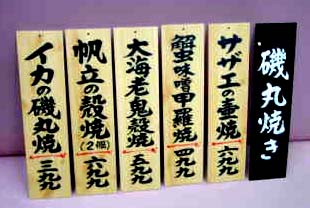 磯丸焼き
サザエの壷焼
六九九
蟹味噌甲羅焼
四九九
大海老鬼殻焼
五九九
帆立の殻焼
(2個)
六九九
イカの磯丸焼
三九九